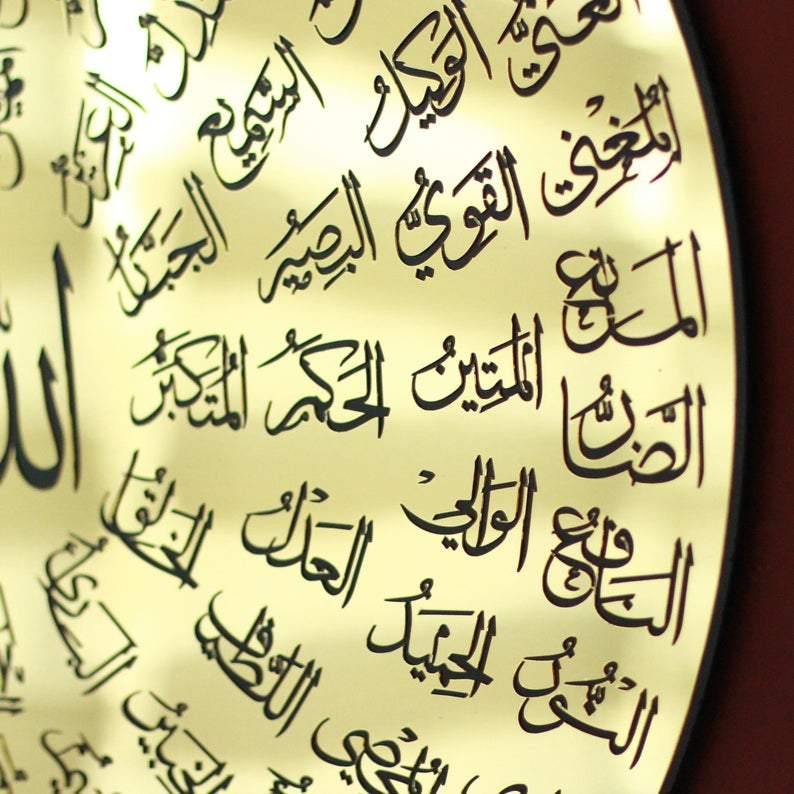 الغني
الوكيل
السميع
المغني
القوي
البصير
الجبار
المانع
المتين
الحكم
المتكبر
الضار
الوالي
العدل
الخالق
النافع
الحميد
اللطيف
البارئ
النور
المحصي
الخبير
الله